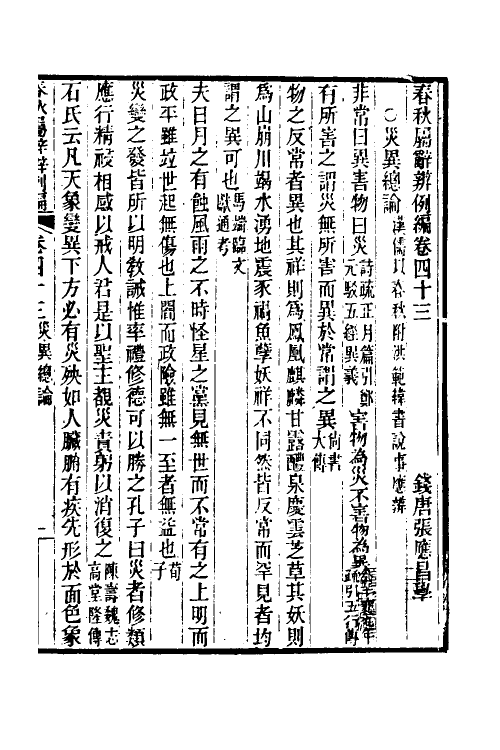 春秋屬辭辨例編卷四十三
錢唐張應昌學
○災異總論 漢儒以春秋附洪範緯書說事應辨
非常曰異害物曰災 詩疏正月篇引鄭元駁五經異義 害物為災不害物為異
有所害之謂災無所害而異於常謂之異 尚書大傳
物之反常者異也其祥則為鳳凰麒麟甘露醴泉慶雲芝草其妖則
為山崩川竭水湧地震豕禍魚孽妖祥不同然皆反常而罕見者均
謂之異可也 馬端臨文獻通考
夫日月之有蝕風雨之不時怪星之黨見無世而不常有之上明而
政平雖竝世起無傷也上闇而政險雖無一至者無益也 荀子
災變之發皆所以明教誡惟率禮修德可以勝之孔子曰災者修類
應行精祲相感以戒人君是以聖主覩災責躬以消復之 陳壽魏志高堂隆傳
石氏云凡天象變異下方必有災殃如人臟腑有疾先形於面色象
春秋屬辭辨例編 卷四十三 災異總論 一